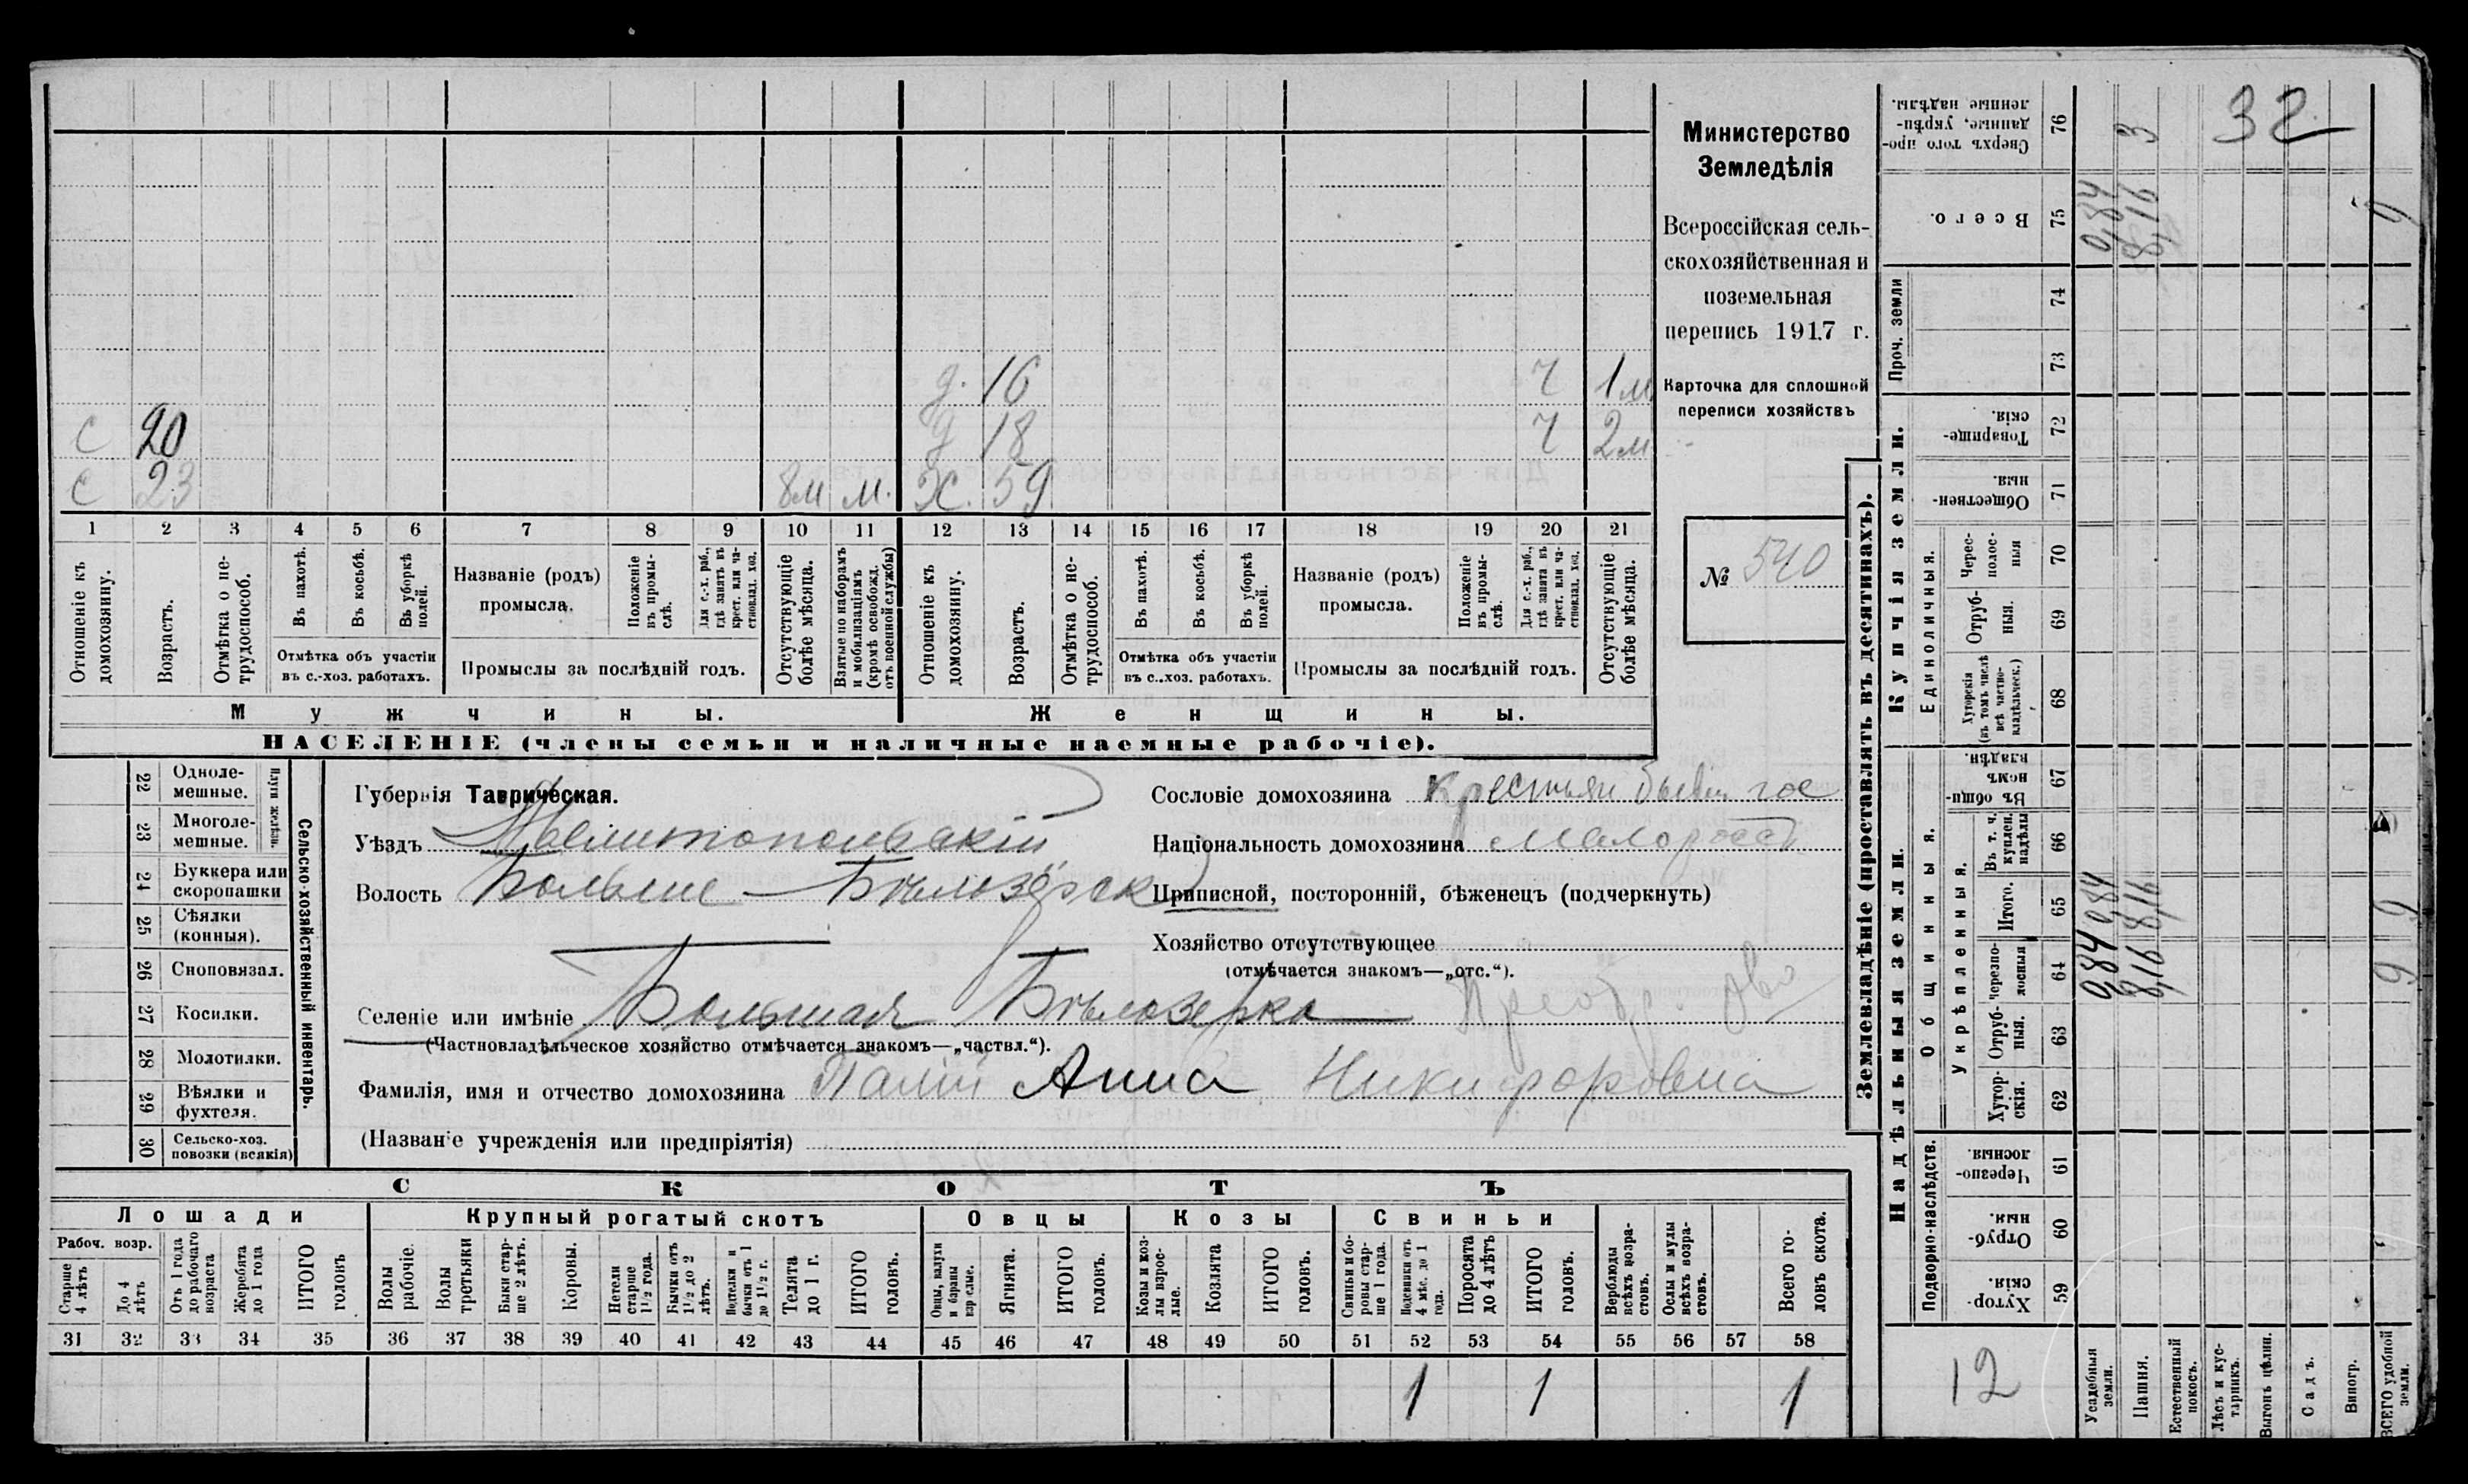 Министерство
Земледѣлія
Всероссійская сель-
скохозяйственная и
поземельная
перепись 1917 г.
Карточка для сплошной
переписи хозяйствъ
№ 540
д. 16 ч 1м
с 20 д 18 ч 2м
с 23 8м м. Ж. 59
1 2 3 4 5 6 7 8 9 10 11 12 13 14 15 16 17 18 19 20 21
Отношеніе къ домохозяину.
Возрастъ.
Отмѣтка о не-трудоспособ.
Въ пахотѣ.
Въ косьбѣ.
Въ уборкѣ полей.
Отмѣтка объ участіи
въ с.-хоз. работахъ.
Названіе (родъ)
промысла.
Положеніе въ промы-слѣ.
Для с.-х. раб., гдѣ занятъ въ крест. или ча-стновлад. хоз.
Промыслы за послѣдній годъ.
Отсутствующіе болѣе мѣсяца.
Взятые по наборамъ и мобилизаціямъ (кромѣ освобожд. отъ военной службы)
Отношеніе къ домохозяину.
Возрастъ.
Отмѣтка о не-трудоспособ.
Въ пахотѣ.
Въ косьбѣ.
Въ уборкѣ полей.
Отмѣтка объ участіи
въ с.-хоз. работахъ.
Названіе (родъ)
промысла.
Положеніе въ промы-слѣ.
Для с.-х. раб., гдѣ занята въ крест. или ча-стновлад. хоз.
Промыслы за послѣдній годъ.
Отсутствующіе болѣе мѣсяца.
Мужчины.
Женщины.
НАСЕЛЕНІЕ (члены семьи и наличные наемные рабочіе).
Сельско-хозяйственный инвентарь.
22 Одноле-мешные.
23 Многоле-мешные.
24 Буккера или скоропашки
25 Сѣялки (конныя).
26 Сноповязал.
27 Косилки.
28 Молотилки.
29 Вѣялки и фухтеля.
30 Сельско-хоз. повозки (всякія)
Губернія Таврическая.
Уѣздъ Мелитопольскій
Волость Больше-Бѣлозёрск
Сословіе домохозяина Крестьян бывш гос
Національность домохозяина малоросс
Приписной, посторонній, бѣженецъ (подчеркнуть)
Хозяйство отсутствующее
(отмѣчается знакомъ—„отс.“).
Селеніе или имѣніе Большая Бѣлозерка
(Частновладѣльческое хозяйство отмѣчается знакомъ—„частвл.“).
Фамилія, имя и отчество домохозяина Палій Анна Никифоровна
(Названіе учрежденія или предпріятія)
СКОТЪ
Лошади
Рабоч. возр.
Старше 4 лѣтъ
До 4 лѣтъ
Отъ 1 года до рабочаго возраста
Жеребята до 1 года
ИТОГО головъ
Крупный рогатый скотъ
Волы рабочіе.
Волы третьяки
Быки стар-ше 2 лѣтъ.
Коровы.
Нетели старше 1½ года.
Бычки отъ 1½ до 2 лѣтъ.
Подтелки и бычки отъ 1 до 1½ г.
Телята до 1 г.
ИТОГО головъ.
Овцы
Овцы, валухи и бараны взрослые.
Ягнята.
ИТОГО головъ.
Козы
Козы и коз-лы взрос-лые.
Козлята
ИТОГО головъ.
Свиньи
Свиньи и бо-ровы стар-ше 1 года.
Подсвинки отъ 4 мѣс. до 1 года.
Поросята до 4 лѣтъ
ИТОГО головъ.
Верблюды всѣхъ возра-стовъ.
Ослы и мулы всѣхъ возра-стовъ.
Всего го-ловъ скота.
31 32 33 34 35 36 37 38 39 40 41 42 43 44 45 46 47 48 49 50 51 52 53 54 55 56 57 58
1 1 1
Землевладѣніе (проставлять въ десятинахъ).
Надѣльныя земли.
Подворно-наслѣдств.
Хутор-скія. 59
Отруб-ныя. 60
Черезпо-лосныя. 61
Общинныя.
Укрѣпленныя.
Хутор-скія. 62
Отруб-ныя. 63
Черезпо-лосныя 64 0,84 8,16 9
Итого. 65 0,84 8,16 9
Въ т. ч. куплен. надѣлы 66
Въ общин-номъ владѣн. 67
Купчія земли.
Единоличныя.
Хуторскія (въ томъ числѣ всѣ частно-владѣльческ.) 68
Отруб-ныя. 69
Черес-полос-ныя 70
Обществен-ныя. 71
Товарище-скія. 72
Проч. земли
73
74
Всего. 75 0,84 8,16 9
Сверхъ того про-данные, укрѣп-ленные надѣлы. 76 3
32
12
Усадебныя земли.
Пашня.
Естественный покосъ.
Лѣсъ и кус-тарникъ.
Выгонъ цѣлин.
Садъ.
Виногр.
ВСЕГО удобной земли.